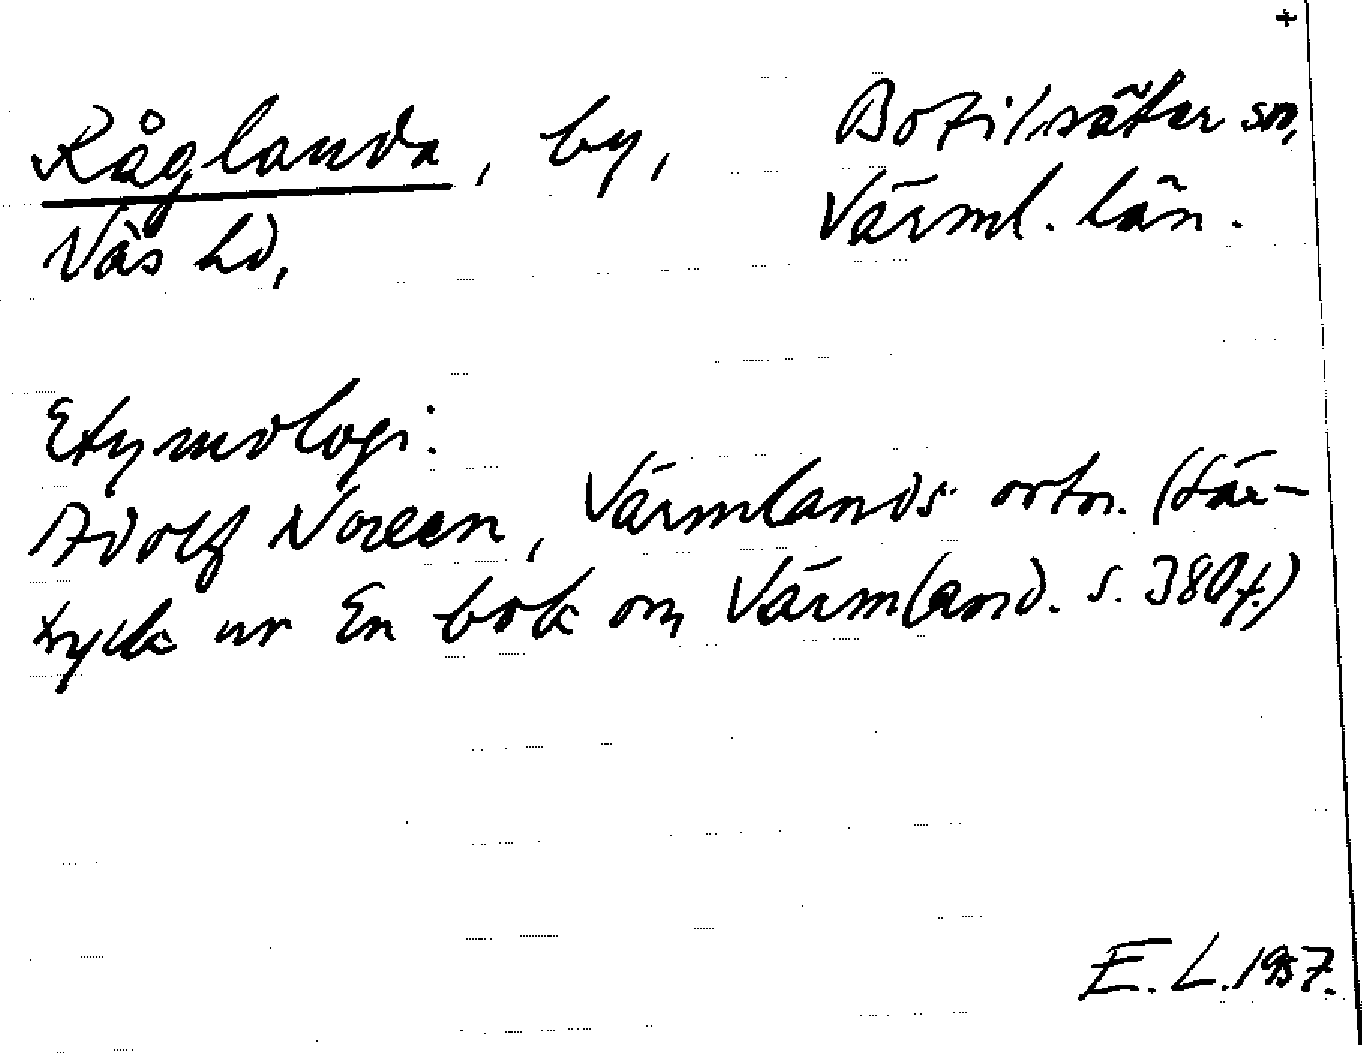 +
Råglanda, by, Botilsäter sn,
Näs hd, Värml. län.
Etymologi:
Adolf Noreen, Värmlands ortn. (Sär-
tryck ur En bok om Värmland. s. 380f.)
E. L. 1957.